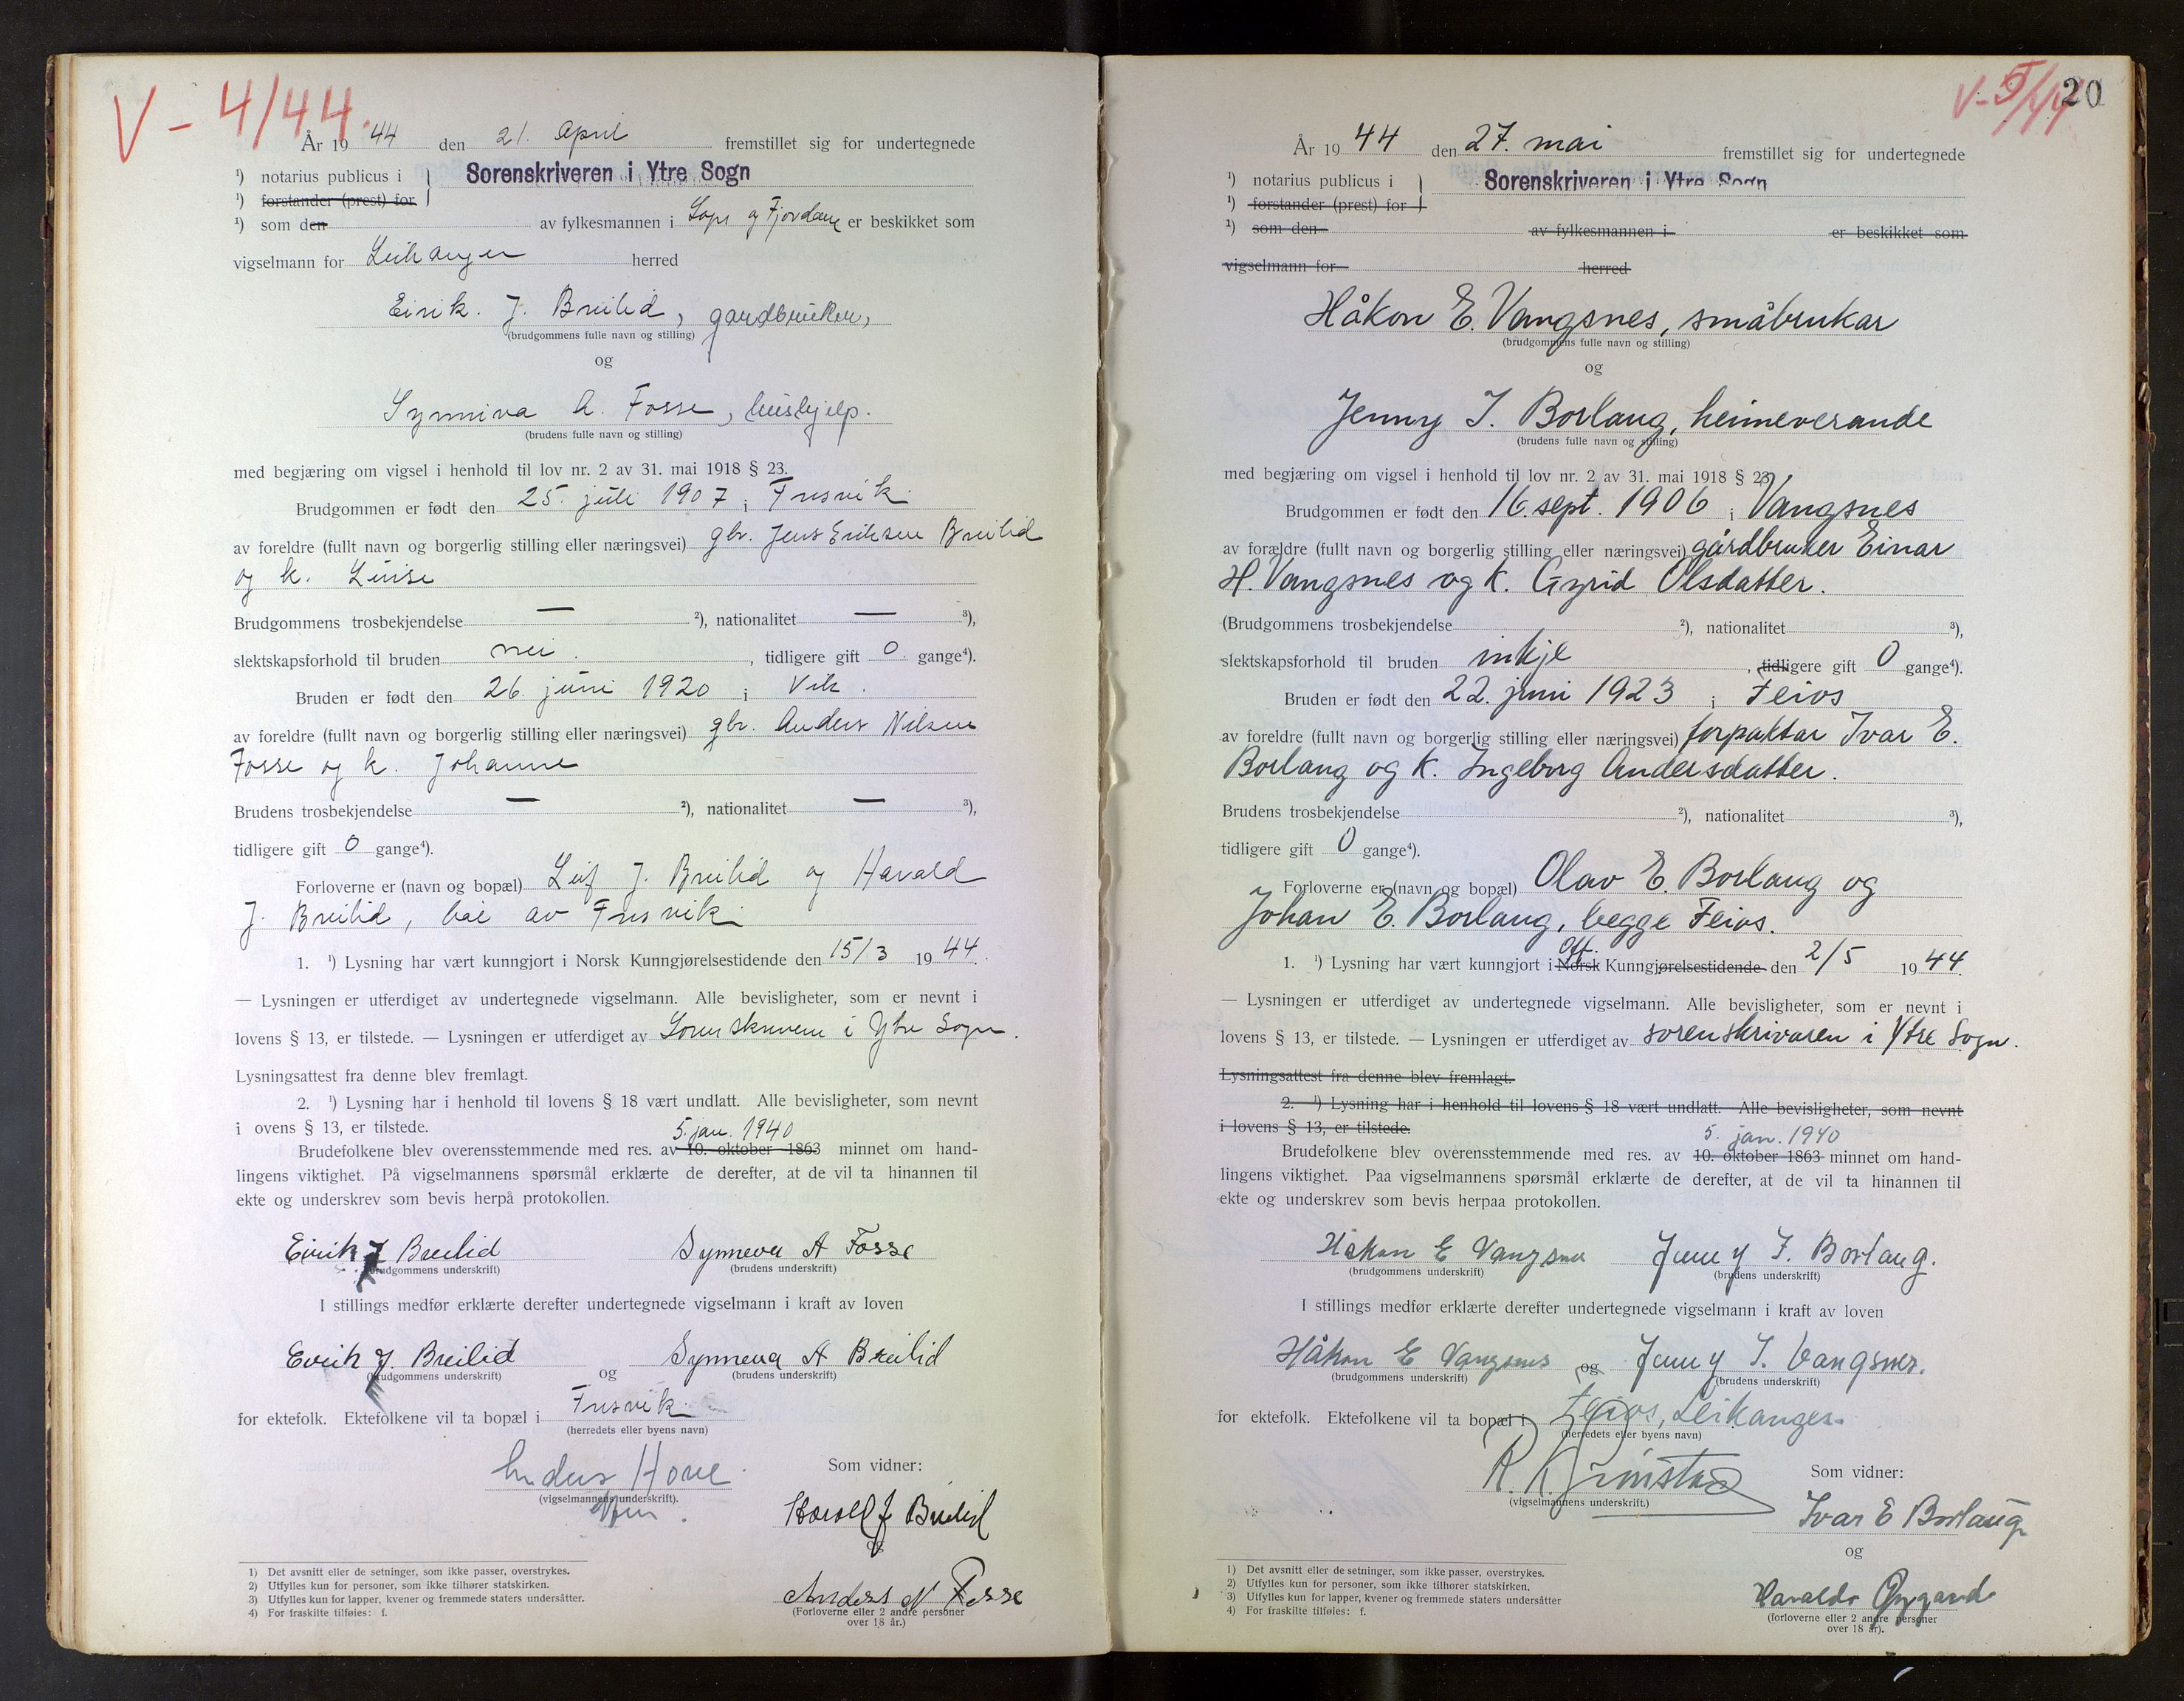 V - 4/44.
År 1944 den 21. April fremstillet sig for undertegnede
¹) notarius publicus i Sorenskriveren i Ytre Sogn
¹) forstander (prest) for
¹) som den av fylkesmannen i Sogn og Fjordane er beskikket som
vigselmann for Leikanger herred
Eirik. J. Breilid, gardbruker,
(brudgommens fulle navn og stilling)
og
Synniva A. Fosse, hushjelp.
(brudens fulle navn og stilling)
med begjæring om vigsel i henhold til lov nr. 2 av 31. mai 1918 § 23.
Brudgommen er født den 25. juli 1907 i Fresvik
av foreldre (fullt navn og borgerlig stilling eller næringsvei) gbr. Jens Eriksen Breilid
og k. Luise
Brudgommens trosbekjendelse — ²), nationalitet — ³),
slektskapsforhold til bruden nei. , tidligere gift 0 gange⁴).
Bruden er født den 26. juni 1920 i Vik.
av foreldre (fullt navn og borgerlig stilling eller næringsvei) gbr. Anders Nilsen
Fosse og k. Johanne
Brudens trosbekjendelse — ²), nationalitet — ³),
tidligere gift 0 gange⁴).
Forloverne er (navn og bopæl) Leif J. Breilid og Harald
J. Breilid, bæe av Fresvik
1. ¹) Lysning har vært kunngjort i Norsk Kunngjørelsestidende den 15/3 1944.
— Lysningen er utferdiget av undertegnede vigselmann. Alle bevisligheter, som er nevnt i
lovens § 13, er tilstede. — Lysningen er utferdiget av Sorenskriveren i Ytre Sogn.
Lysningsattest fra denne blev fremlagt.
2. ¹) Lysning har i henhold til lovens § 18 vært undlatt. Alle bevisligheter, som nevnt
i ovens § 13, er tilstede.
5. jan. 1940
Brudefolkene blev overensstemmende med res. av 10. oktober 1863 minnet om hand-
lingens viktighet. På vigselmannens spørsmål erklærte de derefter, at de vil ta hinannen til
ekte og underskrev som bevis herpå protokollen.
Eirik J Breilid Synneva A Fosse
(brudgommens underskrift) (brudens underskrift)
I stillings medfør erklærte derefter undertegnede vigselmann i kraft av loven
Eirik J. Breilid og Synneva A Breilid
(brudgommens underskrift) (brudens underskrift)
for ektefolk. Ektefolkene vil ta bopæl i Fresvik
(herredets eller byens navn)
Anders Hove Som vidner:
(vigselmannens underskrift).
Harald J Breilid
og
Anders N Fosse
(Forloverne eller 2 andre personer
over 18 år.)
1) Det avsnitt eller de setninger, som ikke passer, overstrykes.
2) Utfylles kun for personer, som ikke tilhører statskirken.
3) Utfylles kun for lapper, kvener og fremmede staters undersåtter.
4) For fraskilte tilføies: f.
V-5/44
20
År 1944 den 27. mai fremstillet sig for undertegnede
¹) notarius publicus i Sorenskriveren i Ytre Sogn
¹) forstander (prest) for
¹) som den av fylkesmannen i er beskikket som
vigselmann for herred
Håkon E. Vangsnes, småbrukar
(brudgommens fulle navn og stilling)
og
Jenny I. Borlaug, heimeverande
(brudens fulle navn og stilling)
med begjæring om vigsel i henhold til lov nr. 2 av 31. mai 1918 § 23.
Brudgommen er født den 16. sept. 1906 i Vangsnes
av forældre (fullt navn og borgerlig stilling eller næringsvei) gårdbruker Einar
H. Vangsnes og k. Gyrid Olsdatter.
(Brudgommens trosbekjendelse ²), nationalitet ³),
slektskapsforhold til bruden inkje , tidligere gift 0 gange⁴).
Bruden er født den 22. juni 1923 i Feios
av foreldre (fullt navn og borgerlig stilling eller næringsvei) forpaktar Ivar E.
Borlaug og k. Ingeborg Andersdatter.
Brudens trosbekjendelse ²), nationalitet ³),
tidligere gift 0 gange⁴).
Forloverne er (navn og bopæl) Olav E. Borlaug og
Johan E. Borlaug, begge Feios.
Off.
1. ¹) Lysning har vært kunngjort i Norsk Kunngjørelsestidende den 2/5 1944.
— Lysningen er utferdiget av undertegnede vigselmann. Alle bevisligheter, som er nevnt i
lovens § 13, er tilstede. — Lysningen er utferdiget av sorenskrivaren i Ytre Sogn.
Lysningsattest fra denne blev fremlagt.
2. ¹) Lysning har i henhold til lovens § 18 vært undlatt. Alle bevisligheter, som nevnt
i lovens § 13, er tilstede.
5. jan. 1940
Brudefolkene blev overensstemmende med res. av 10. oktober 1863 minnet om hand-
lingens viktighet. Paa vigselmannens spørsmål erklærte de derefter, at de vil ta hinannen til
ekte og underskrev som bevis herpaa protokollen.
Håkon E Vangsnes Jenny I. Borlaug.
(brudgommens underskrift) (brudens underskrift)
I stillings medfør erklærte derefter undertegnede vigselmann i kraft av loven
Håkon E Vangsnes og Jenny I. Vangsnes.
(brudgommens underskrift) (brudens underskrift)
for ektefolk. Ektefolkene vil ta bopæl i Feios, Leikanger.
(herredets eller byens navn)
R. K. Grimstad Som vidner:
(vigselmannens underskrift.)
Ivar E Borlaug
og
Haralds Øygard
(forloverne eller 2 andre personer
over 18 år).
1) Det avsnitt eller de setninger, som ikke passer, overstrykes.
2) Utfylles kun for personer, som ikke tilhører statskirken.
3) Utfylles kun for lapper, kvener og fremmede staters undersåtter
4) For fraskilte tilføies: f.